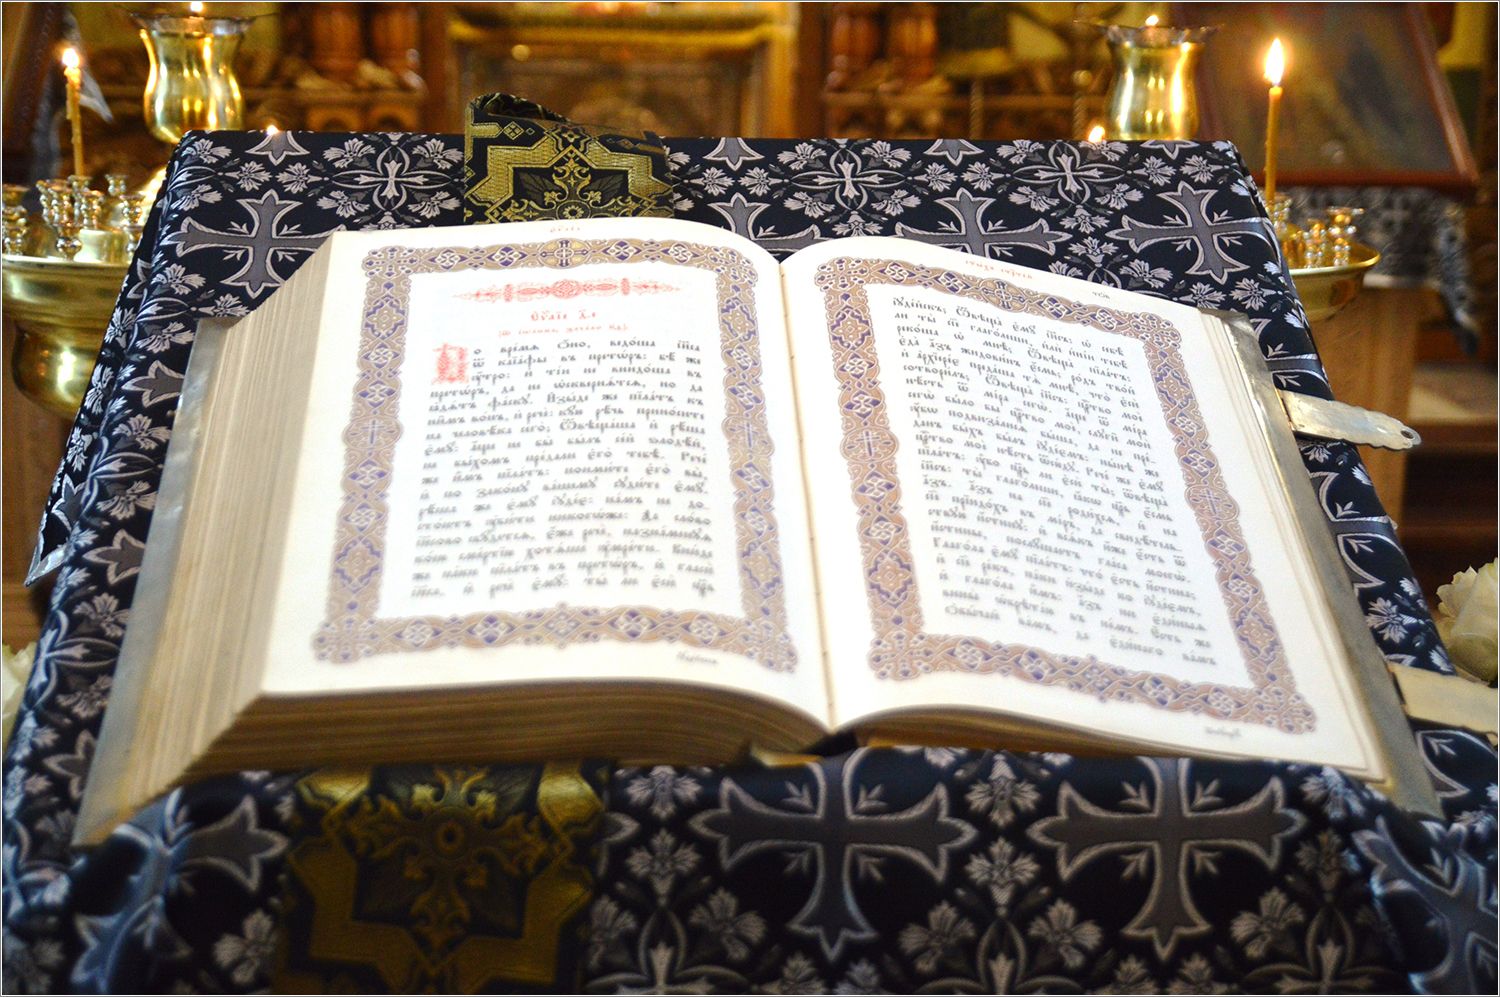 Во время оно, ведоша іиса
ѿ каіафы въ претѡръ: бѣ же
оутро: и тіи не внидоша въ
претѡръ, да не ѡсквернятся, но да
ядятъ фаску. Изыде же пілатъ къ
нимъ вонъ, и рече: кую рѣчь приносите
на человѣка сего; Ѿвѣщаша и рѣша
ему: аще не бы былъ сей злодѣй,
не быхомъ предали его тебѣ. Рече
же имъ пілатъ: поимите его вы,
и по закону вашему судите ему.
рѣша же ему іудее: намъ не до-
стоитъ убити никогоже: Да слово
іисово сбудется, еже рече, назнаменуя
коею смертію хотяше умрети. Вниде
же паки пілатъ въ претѡръ, и гласи
іиса, и рече ему: ты ли еси црь
іудейскъ; Ѿвѣща ему іисъ: ѡ себѣ
ли ты сіе глаголеши, или иніи тебѣ
рекоша ѡ мнѣ; Ѿвѣща пілатъ:
еда азъ жидовинъ есмь; родъ твой
и архіерее предаша тя мнѣ: что еси
сотворилъ; Ѿвѣща іисъ: цртво мое
нѣсть ѿ міра сего. аще ѿ міра
сего было бы цртво мое, слуги мои
убѡ подвизалися быша, да не пре-
данъ быхъ былъ іудеемъ: нынѣ же
цртво мое нѣсть ѿсюду. Рече же ему
пілатъ: убо црь ли еси ты; ѿвѣща
іисъ: ты глаголеши, якѡ црь есмь
азъ. азъ на сіе родихся, и на
сіе пріидохъ въ міръ, да свидѣтель-
ствую истину: и всякъ иже есть ѿ
истины, послушаетъ гласа моегѡ.
Глагола ему пілатъ: что есть истина;
и сіе рекъ, паки изыде ко іудеемъ,
и глагола имъ: азъ ни единыя
вины ѡбрѣтаю въ немъ. Есть же
Ѡбычай вамъ, да единаго вамъ